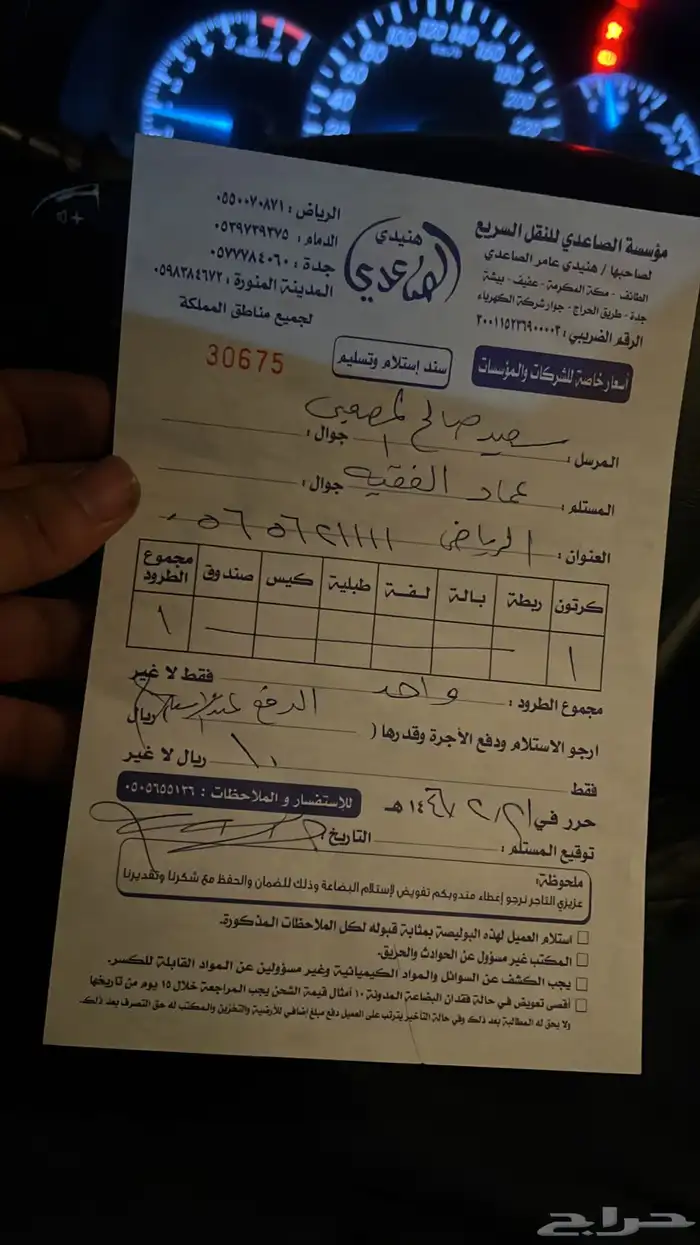 مؤسسة الصاعدي للنقل السريع
لصاحبها / هنيدي عامر الصاعدي
الطائف - مكة المكرمة - عفيف - بيشة
جدة - طريق الحراج - جوار شركة الكهرباء
الرقم الضريبي : ٣٠٠١١٥٢٣٦٩٠٠٠٠٣
هنيدي
الصاعدي
الرياض : ٠٥٥٠٠٧٠٨٧١
الدمام : ٠٥٣٩٧٣٩٣٧٥
جدة : ٠٥٧٧٧٨٤٠٦٠
المدينة المنورة : ٠٥٩٨٣٨٤٦٧٢
لجميع مناطق المملكة
أسعار خاصة للشركات والمؤسسات
سند إستلام وتسليم
30675
المرسل : سعيد صالح جوال :
المستلم : عماد الفقيه جوال :
العنوان : الرياض ٠٥٦٥٦٢١١١١
كرتون ربطة بالة لفة طبلية كيس صندوق مجموع الطرود
١ ١
مجموع الطرود : واحد فقط لا غير
ارجو الاستلام ودفع الأجرة وقدرها ( الدفع عند ريال
فقط ريال لا غير
حرر في ١٤٤٧ هـ
للإستفسار و الملاحظات : ٠٥٠٥٦٥٥١٣٦
توقيع المستلم : التاريخ
ملحوظة:
عزيزي التاجر نرجو إعطاء مندوبكم تفويض لإستلام البضاعة وذلك للضمان والحفظ مع شكرنا وتقديرنا
استلام العميل لهذه البوليصة بمثابة قبوله لكل الملاحظات المذكورة.
المكتب غير مسؤول عن الحوادث والحريق.
يجب الكشف عن السوائل والمواد الكيميائية وغير مسؤولين عن المواد القابلة للكسر.
أقصى تعويض في حالة فقدان البضاعة المدونة ١٠ أمثال قيمة الشحن يجب المراجعة خلال ١٥ يوم من تاريخها
ولا يحق له المطالبة بعد ذلك وفي حالة التأخير يترتب على العميل دفع مبلغ إضافي للأرضية والتخزين والمكتب له حق التصرف بعد ذلك.
حراج